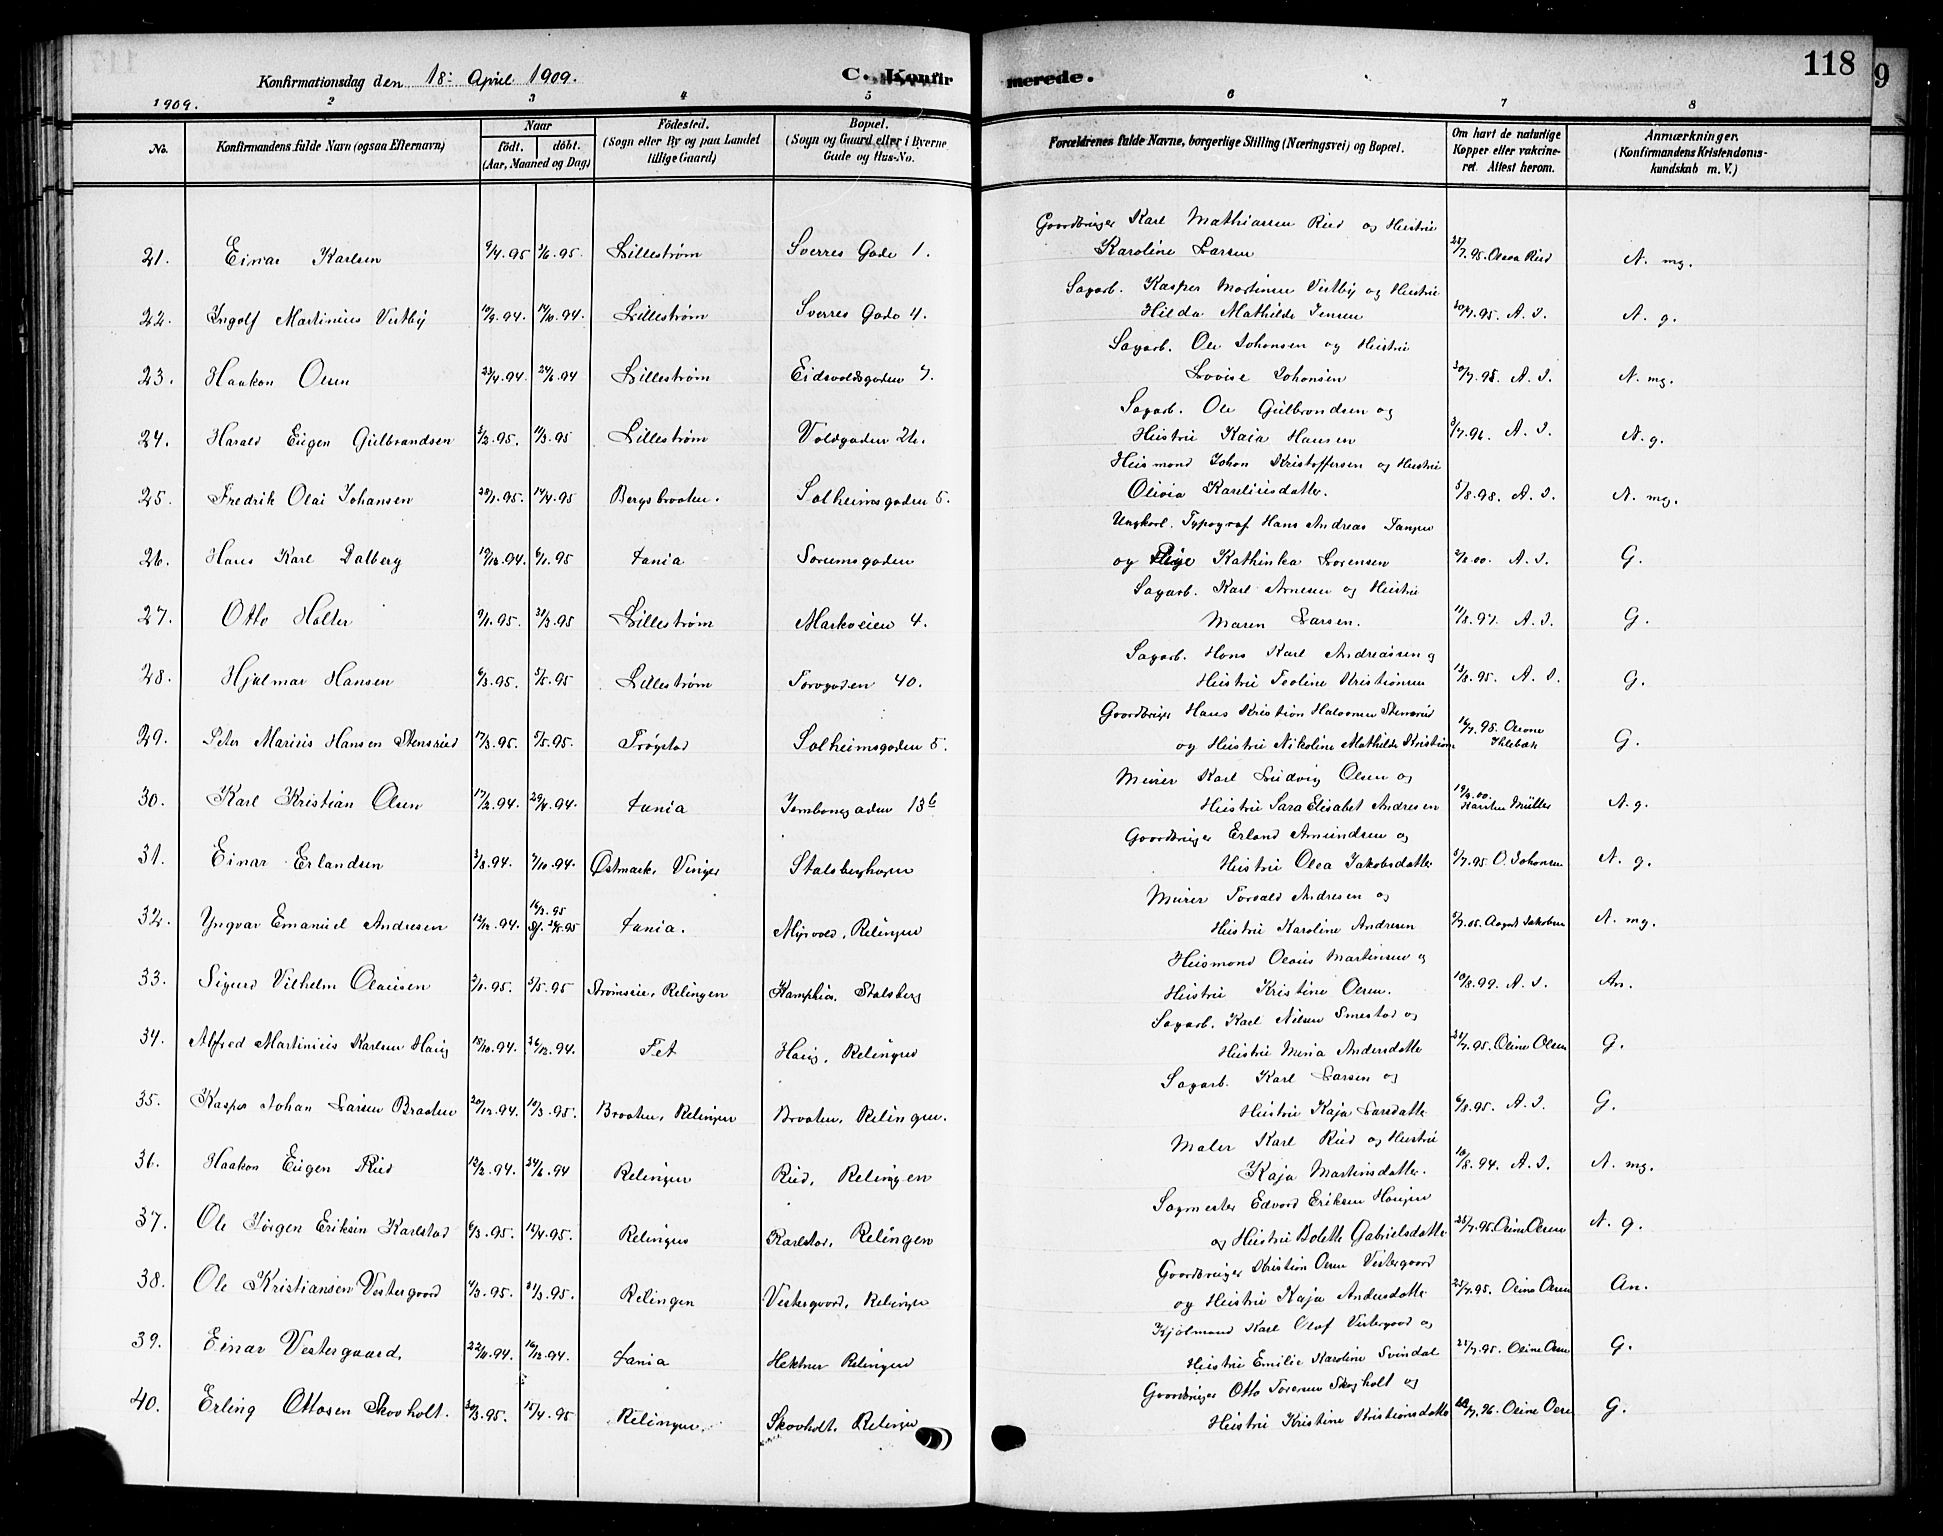 118
9
Konfirmationsdag den 18: April 1909.
C. Konfirmerede.
1909. 2 3 4 5 6 7 8
No.
Konfirmandens fulde Navn (ogsaa Efternavn)
Naar
födt. döbt.
(Aar, Maaned og Dag)
Födested.
(Sogn eller By og paa Landet
tillige Gaard)
Bopæl.
(Sogn og Gaard eller i Byerne
Gade og Hus-No.
Forældrenes fulde Navne, borgerlige Stilling (Næringsvei) og Bopæl.
Om havt de naturlige
Kopper eller vakcine-
ret. Attest herom.
Anmærkninger.
(Konfirmandens Kristendoms-
kundskab m. V.)
Gaardbruger Karl Mathiassen Rud og Hustru
21. Einar Karlsen 9/4.95 Lillestrøm Sverres Gade 1. Karoline Larsen A. mg.
Sagarb. Kasper Martinsen Vestby og Hustru
22. Ingolf Martinius Vestby Lillestrøm Sverres Gade 4. Hilda Mathilde Jensen 20/7.95. A. J. A. g.
Sagarb. Ole Johansen og Hustru
23. Haakon Olsen 23/4.94 24/6.94 Lillestrøm Eidsvoldsgaden 7. Lovise Johansen A. J. A. mg.
Sagarb. Ole Gulbrandsen og
24. Harald Eugen Gulbrandsen 11/3.95 Lillestrøm Voldgaden 26. Hustru Kaia Hansen 3/7.96. A. J. A. g.
Husmand Johan Kristoffersen og Hustru
25. Fredrik Olai Johansen 28/1.95. 14/4.95 Bergsbraaten. Solheimsgaden 5. Olivia Kareliusdatter. 5/8.98. A. J. A. mg.
Ungkarl. Typograf Hans Andreas Tangen
26. Hans Karl Dalberg 19/12.94. 6/1.95 Kania Sorumsgaden og Pige Kathinka Sorensen A. J. G.
Sagarb. Karl Arnesen og Hustru
27. Otto Holter 9/1.95. 31/3.95 Lillestrøm Markveien 4. Maren Larsen. 11/8.97. A. J. G.
Sagarb. Hans Karl Andreassen og
28. Hjalmar Hansen 6/3.95. 5/5.95 Lillestrøm Torvgaden 40. Hustru Teoline Kristiansen 13/8.95. A. J. G.
Gaardbruger Hans Kristian Halvorsen Stensrud
29. Peter Marius Hansen Stensrud 17/3.95. 5/5.95. Trøgstad Solheimsgaden 5. og Hustru Nikoline Mathilde Kristians 16/7.95. G.
Murer Karl Ludvig Olsen og
30. Karl Kristian Olsen 17/2.94. Kania Jernbanegaden 13b Hustru Sara Elisabet Andresen Karsten Müller A. g.
Gaardbruger Erland Amundsen og
31. Einar Erlandsen 3/8.94. 7/10.94. Østmark, Vinger Stalsberghagen Hustru Olea Jakobsdatter O. Johansen A. g.
Murer Torvald Andresen og
32. Yngvar Emanuel Andresen 12/12.94. Kania. Myrvold, Relingen Hustru Karoline Andresen August Jakobsen A. mg.
Husmand Olaus Martinsen og
33. Sigurd Vilhelm Olausen 2/1.95. 5/5.95 Strømsrud, Relingen Kamphia. Stalsberg Hustru Kristine Olsen. 10/8.99. A. J. An.
Sagarb. Karl Nilsen Smestad og
34. Alfred Martinius Karlsen Haug 18/10.94. 26/12.94. Fet Haug, Relingen Hustru Mina Andersdatter Oline Olsen G.
Sagarb. Karl Larsen og
35. Kasper Johan Larsen Braaten 20/12.94. 10/3.95. Braaten, Relingen Braaten, Relingen. Hustru Kaja Larsdatter 6/8.95. A. J. G.
Maler Karl Rud og Hustru
36. Haakon Eugen Rud 12/2.94. 24/6.94 Relingen Rud, Relingen Kaja Martinsdatter. 10/8.94. A. J. A. mg.
Sagmester Edvard Eriksen Haugen
37. Ole Jørgen Eriksen Karlstad 6/3.95. 15/4.95. Relingen Karlstad, Relingen og Hustru Bolette Gabrielsdatter Oline Olsen A. g.
Gaardbruger Kristian Olsen Vestergaard
38. Ole Kristiansen Vestergaard 4/3.95. 31/3.95. Relingen Vestergaard, Relingen og Hustru Kaja Andersdatter 25/7.95. Oline Olsen An.
Kjølmand Karl Olaf Vestergaard og
39. Einar Vestergaard, 22/11.94. 16/12.94. Kania Hektner Relingen Hustru Emilie Karoline Svindal Oline Olsen G.
Gaardbruger Otto Torersen Skogholt og
40. Erling Ottosen Skovholt. 30/3.95. 15/4.95 Relingen. Skovholdt, Relingen Hustru Kristine Kristiansdatter Oline Olsen G.